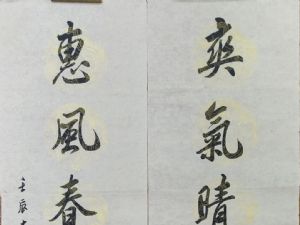 爽氣晴
惠風春
壬辰